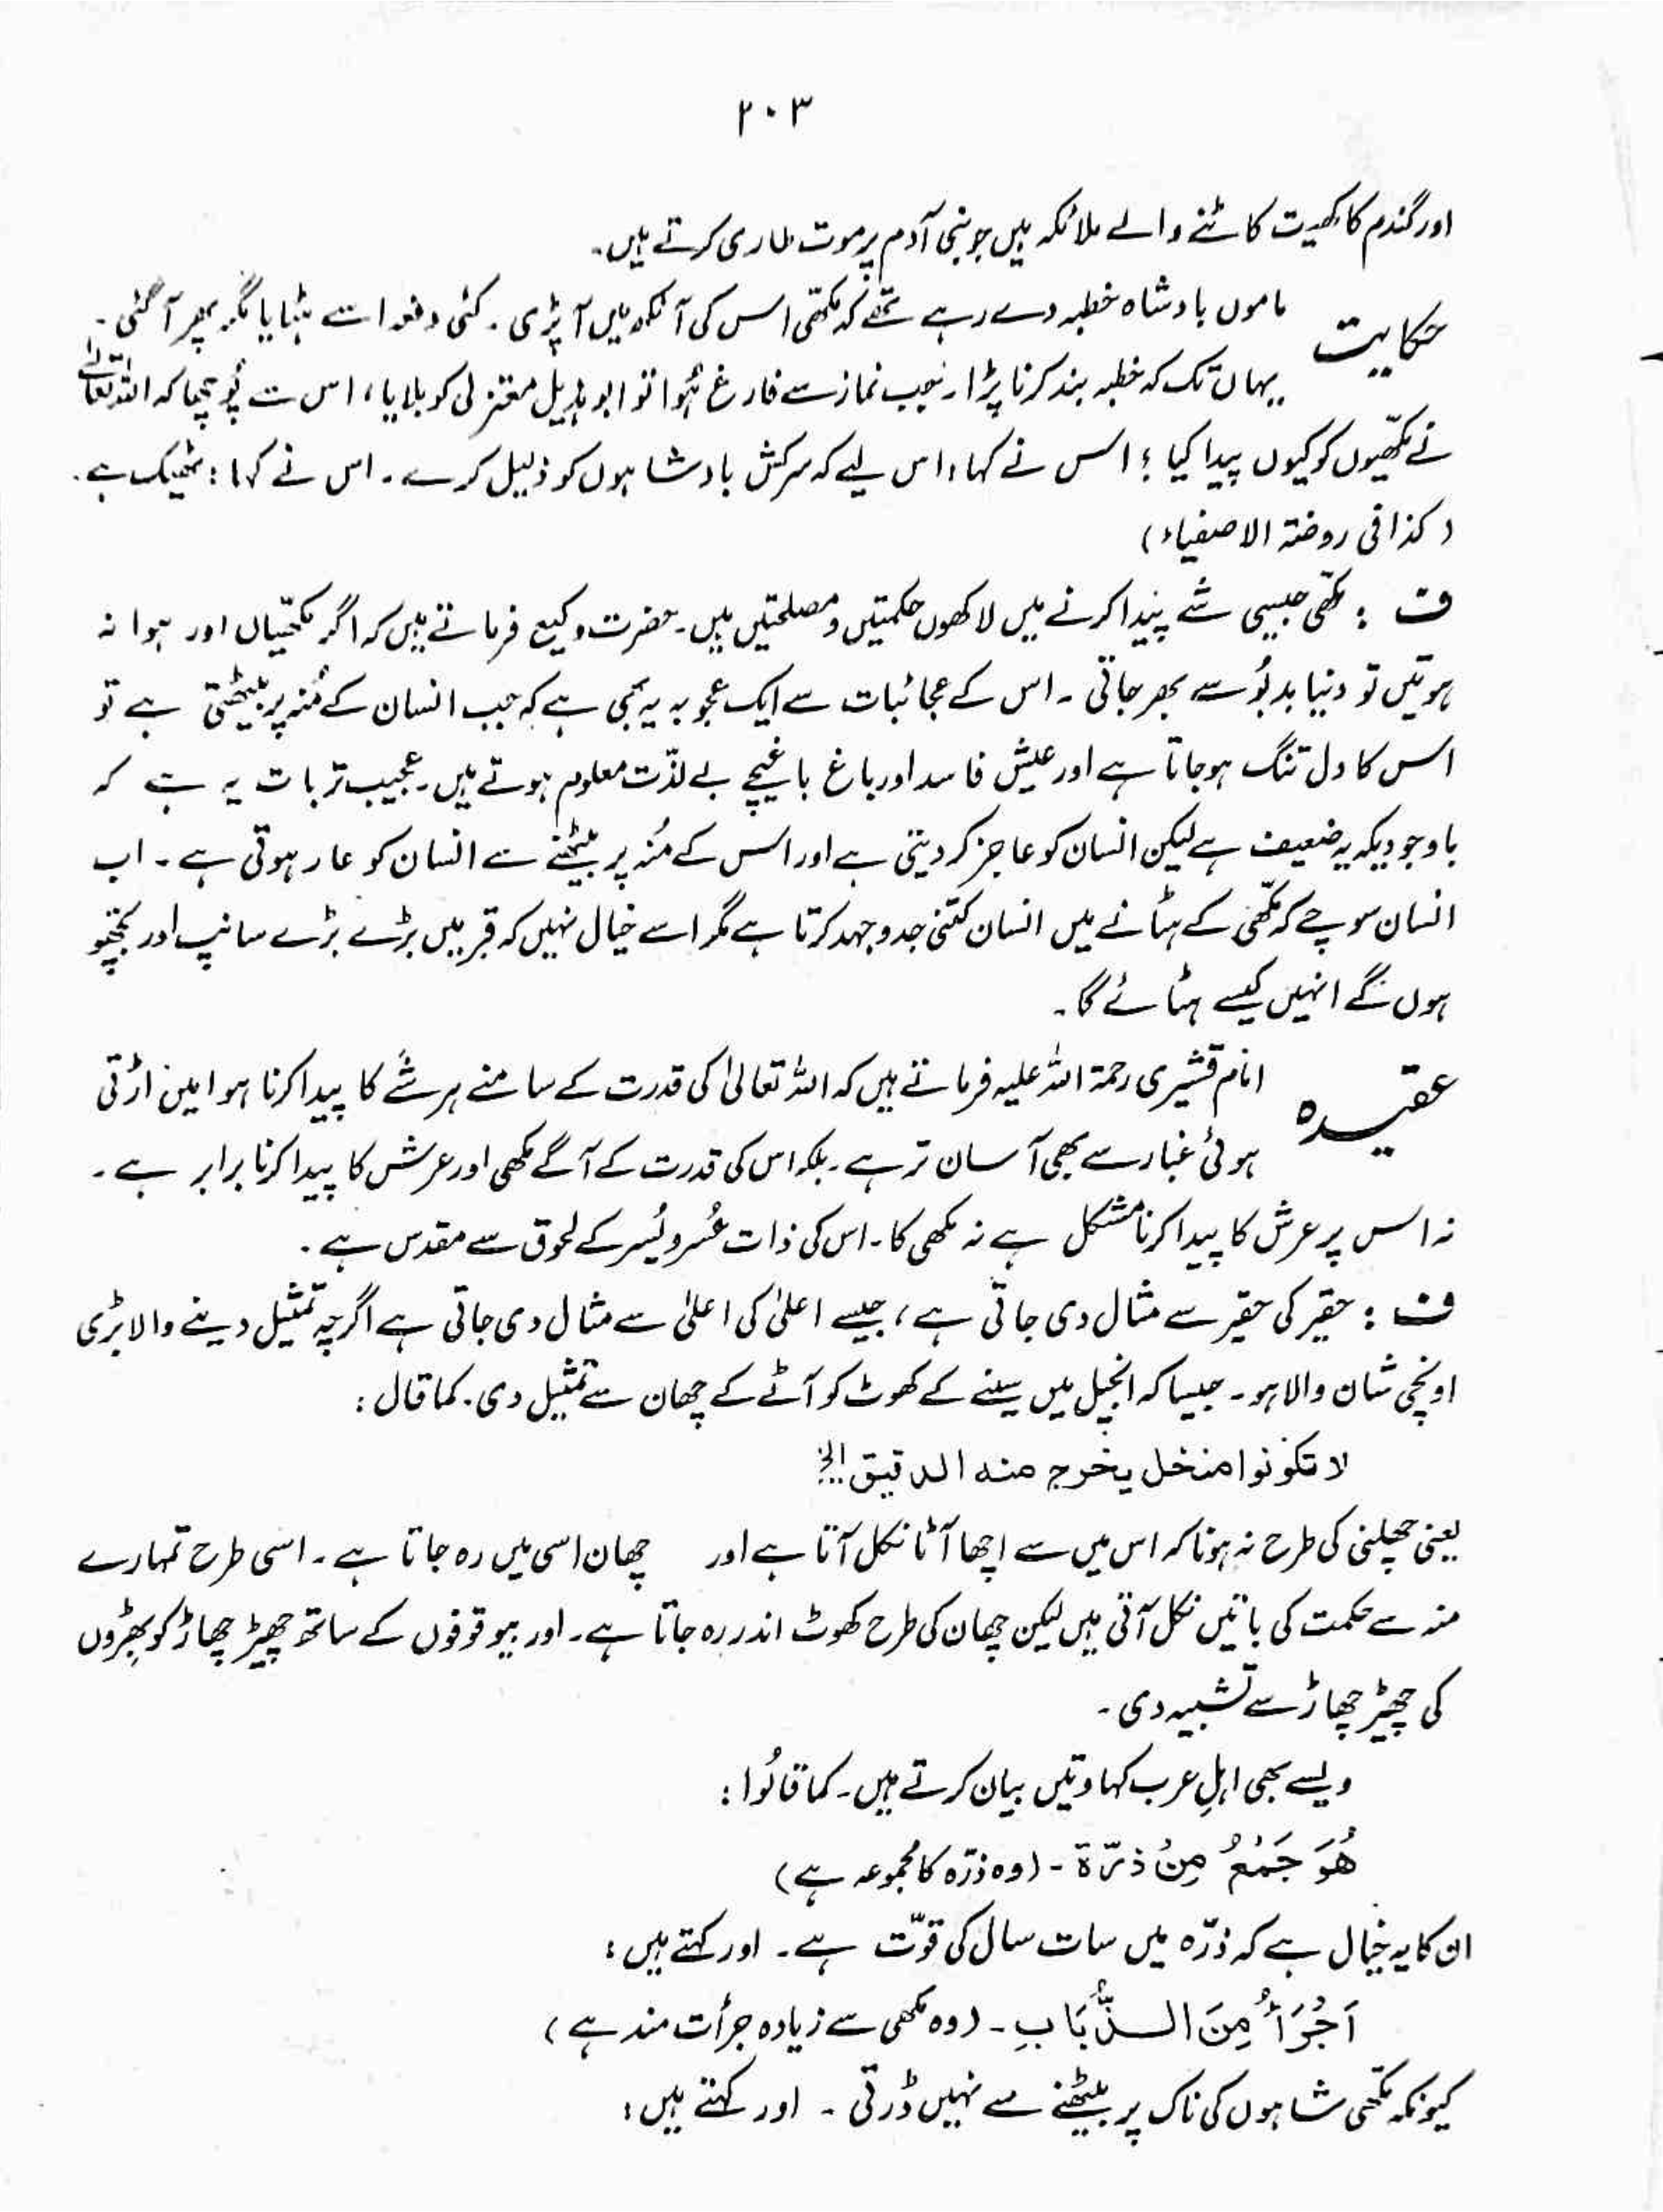 ۲۰۳
اور گندم کا کھیت کاٹنے والے ملائکہ ہیں جو بنی آدم پر موت طاری کرتے ہیں۔
حکایت ماموں بادشاہ خطبہ دے رہے تھے کہ مکھّی اس کی آنکھ میں آ پڑی۔ کئی دفعہ اسے ہٹایا مگر پھر آ گئی۔
یہاں تک کہ خطبہ بند کرنا پڑا۔ جب نماز سے فارغ ہُوا تو ابو ہذیل معتزلی کو بلایا، اس سے پُوچھا کہ اللہ تعالےٰ
نے مکھّیوں کو کیوں پیدا کیا؟ اس نے کہا، اس لیے کہ سرکش بادشاہوں کو ذلیل کرے۔ اس نے کہا: ٹھیک ہے۔
(کذا فی روضۃ الاصفیاء)
ف: مکھّی جیسی شے پیدا کرنے میں لاکھوں حکمتیں و مصلحتیں ہیں۔ حضرت وکیع فرماتے ہیں کہ اگر مکھّیاں اور ہوا نہ
ہوتیں تو دنیا بدبُو سے بھر جاتی۔ اس کے عجائبات سے ایک عجوبہ یہ بھی ہے کہ جب انسان کے مُنہ پر بیٹھتی ہے تو
اس کا دل تنگ ہو جاتا ہے اور عیش فاسد اور باغ باغیچے بے لذّت معلوم ہوتے ہیں۔ عجیب تر بات یہ ہے کہ
باوجودیکہ یہ ضعیف ہے لیکن انسان کو عاجز کر دیتی ہے اور اس کے مُنہ پر بیٹھنے سے انسان کو عار ہوتی ہے۔ اب
انسان سوچے کہ مکھّی کے ہٹانے میں انسان کتنی جدوجہد کرتا ہے مگر اسے خیال نہیں کہ قبر میں بڑے بڑے سانپ اور بچھّو
ہوں گے انہیں کیسے ہٹائے گا۔
عقیدہ امام قشیری رحمۃ اللہ علیہ فرماتے ہیں کہ اللہ تعالیٰ کی قدرت کے سامنے ہر شے کا پیدا کرنا ہوا میں اڑتی
ہوئی غبار سے بھی آسان تر ہے۔ بلکہ اس کی قدرت کے آگے مکھی اور عرش کا پیدا کرنا برابر ہے۔
نہ اس پر عرش کا پیدا کرنا مشکل ہے نہ مکھی کا۔ اس کی ذات عُسر و یُسر کے لحوق سے مقدس ہے۔
ف: حقیر کی حقیر سے مثال دی جاتی ہے، جیسے اعلیٰ کی اعلیٰ سے مثال دی جاتی ہے اگرچہ تمثیل دینے والا بڑی
اونچی شان والا ہو۔ جیسا کہ انجیل میں سینے کے کھوٹ کو آٹے کے چھان سے تمثیل دی۔ کما قال:
لا تکونوا منخل یخرج منہ الدقیق الخ
یعنی چھلنی کی طرح نہ ہونا کہ اس میں سے اچھا آٹا نکل آتا ہے اور چھان اسی میں رہ جاتا ہے۔ اسی طرح تمہارے
منہ سے حکمت کی باتیں نکل آتی ہیں لیکن چھان کی طرح کھوٹ اندر رہ جاتا ہے۔ اور بیوقوفوں کے ساتھ چھیڑ چھاڑ کو بھڑوں
کی چھیڑ چھاڑ سے تشبیہ دی۔
ویسے بھی اہلِ عرب کہاوتیں بیان کرتے ہیں۔ کما قالُوا:
ھُوَ جَمْعُ مِنْ ذرّۃ - (وہ ذرّہ کا مجموعہ ہے)
ان کا یہ خیال ہے کہ ذرّہ میں سات سال کی قوّت ہے۔ اور کہتے ہیں:
اَجْرَأُ مِنَ الذُّبَابِ - (وہ مکھی سے زیادہ جرأت مند ہے)
کیونکہ مکھّی شاہوں کی ناک پر بیٹھنے سے نہیں ڈرتی۔ اور کہتے ہیں: